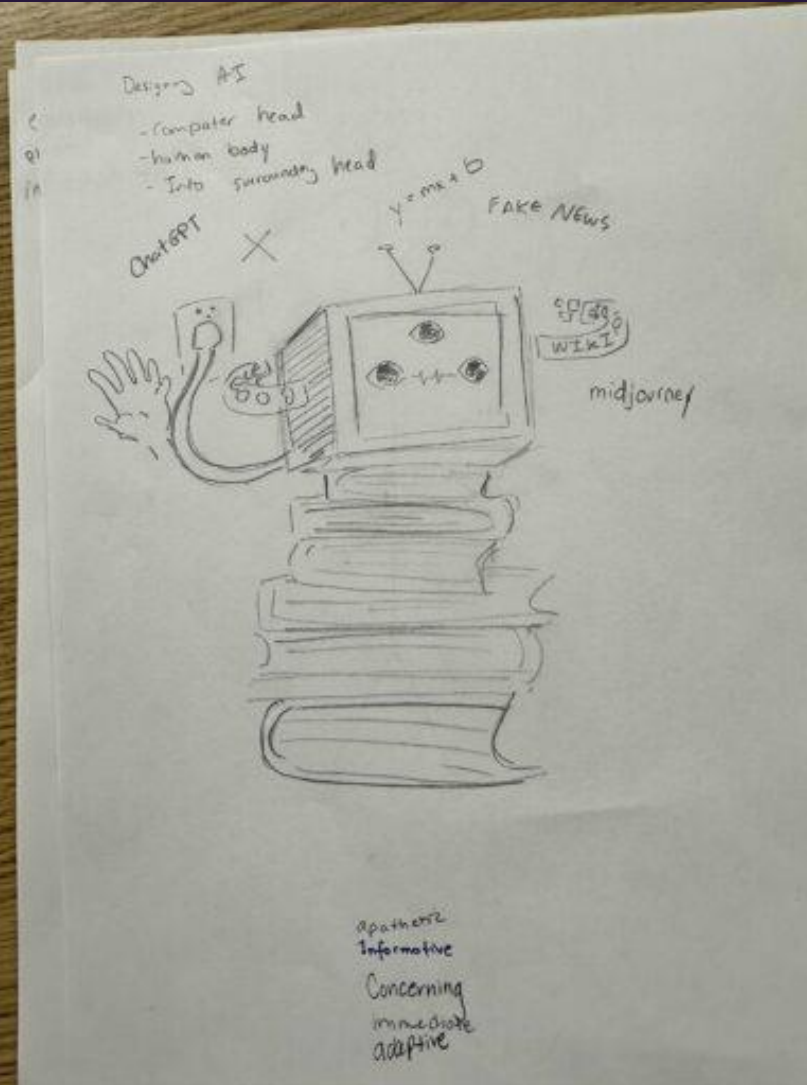 Designing AI
- Computer head
- human body
- Info surrounding head
y = mx + b
FAKE NEWS
ChatGPT
WIKI
midjourney
apathetic
Informative
Concerning
immediate
adaptive